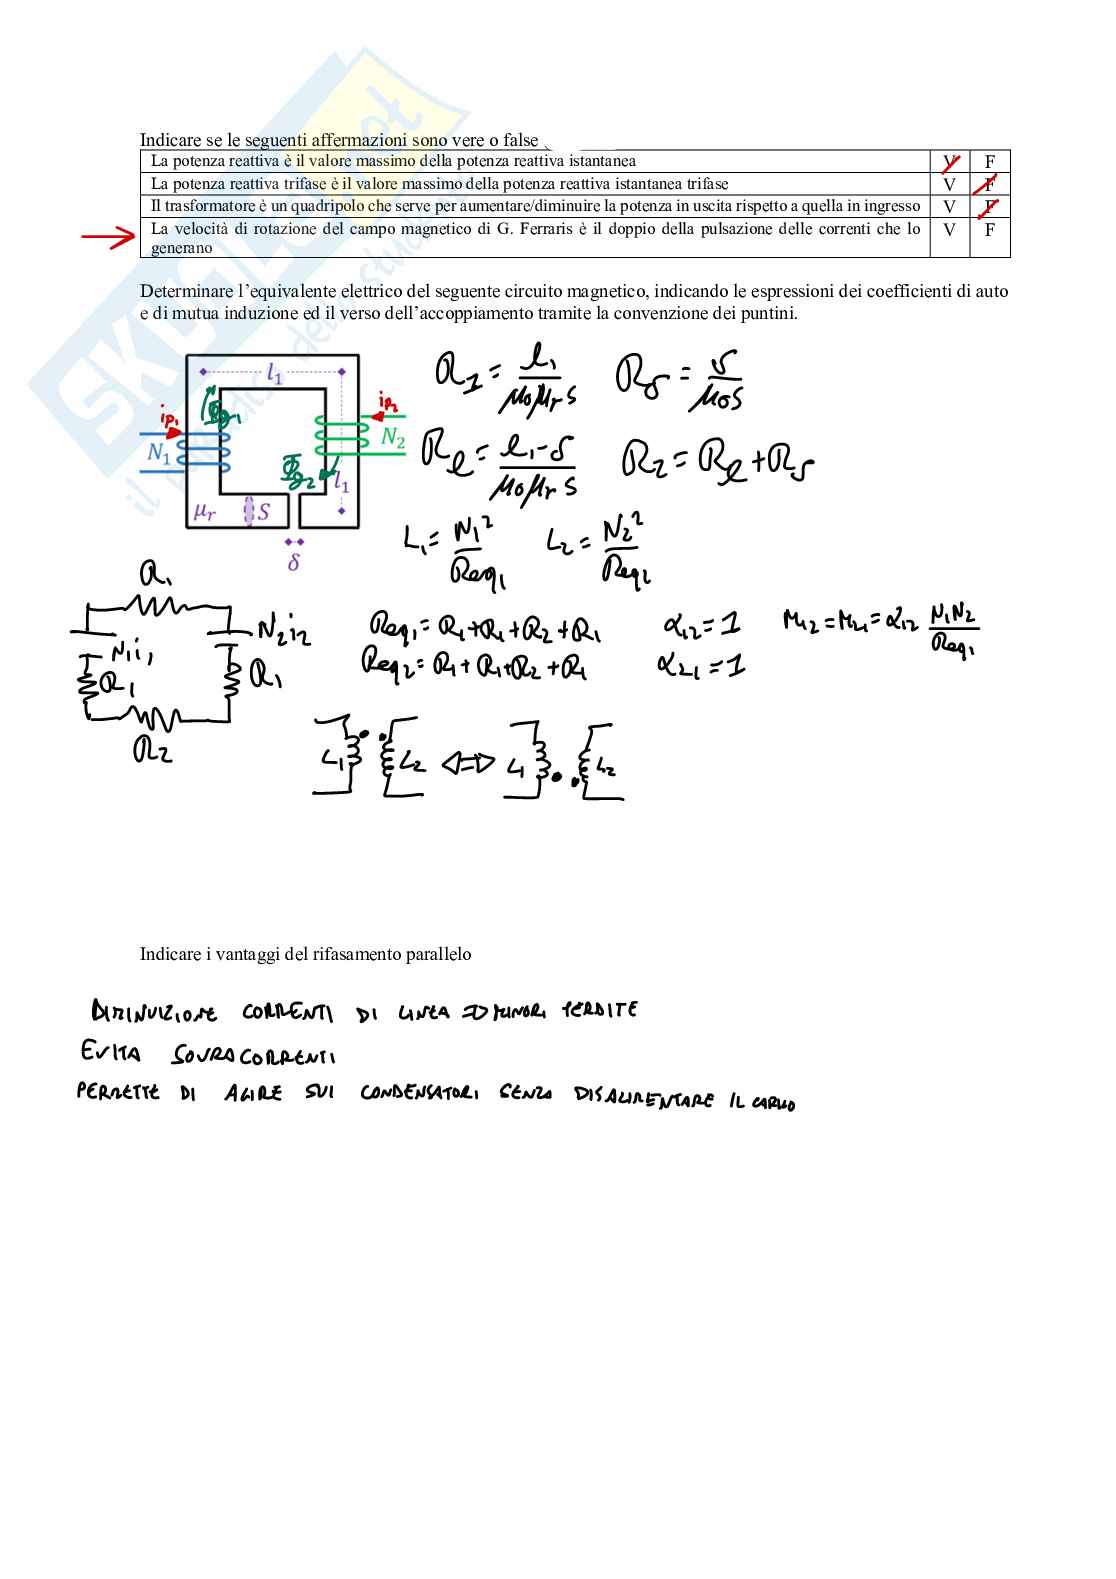 Indicare se le seguenti affermazioni sono vere o false
La potenza reattiva è il valore massimo della potenza reattiva istantanea V F
La potenza reattiva trifase è il valore massimo della potenza reattiva istantanea trifase V F
Il trasformatore è un quadripolo che serve per aumentare/diminuire la potenza in uscita rispetto a quella in ingresso V F
La velocità di rotazione del campo magnetico di G. Ferraris è il doppio della pulsazione delle correnti che lo V F
generano
Determinare l'equivalente elettrico del seguente circuito magnetico, indicando le espressioni dei coefficienti di auto
e di mutua induzione ed il verso dell'accoppiamento tramite la convenzione dei puntini.
l₁
R₁ = l₁/(μ₀μᵣS) Rδ = δ/(μ₀S)
ip₁ ip₂
N₁ N₂
Rℓ = (l₁-δ)/(μ₀μᵣS) R₂ = Rℓ + Rδ
l₁
μᵣ S
δ
L₁ = N₁²/Req₁ L₂ = N₂²/Req₂
R₁
N₁i₁ N₂i₂
R₁ R₁
R₂
Req₁ = R₁+R₁+R₂+R₁ α₁₂ = 1 M₁₂ = M₂₁ = α₁₂ N₁N₂/Req₁
Req₂ = R₁+R₁+R₂+R₁ α₂₁ = 1
L₁ L₂ ⇔ L₁ L₂
Indicare i vantaggi del rifasamento parallelo
DIMINUIZIONE CORRENTI DI LINEA => MINORI PERDITE
EVITA SOVRACORRENTI
PERMETTE DI AGIRE SUI CONDENSATORI SENZA DISALIMENTARE IL CARICO